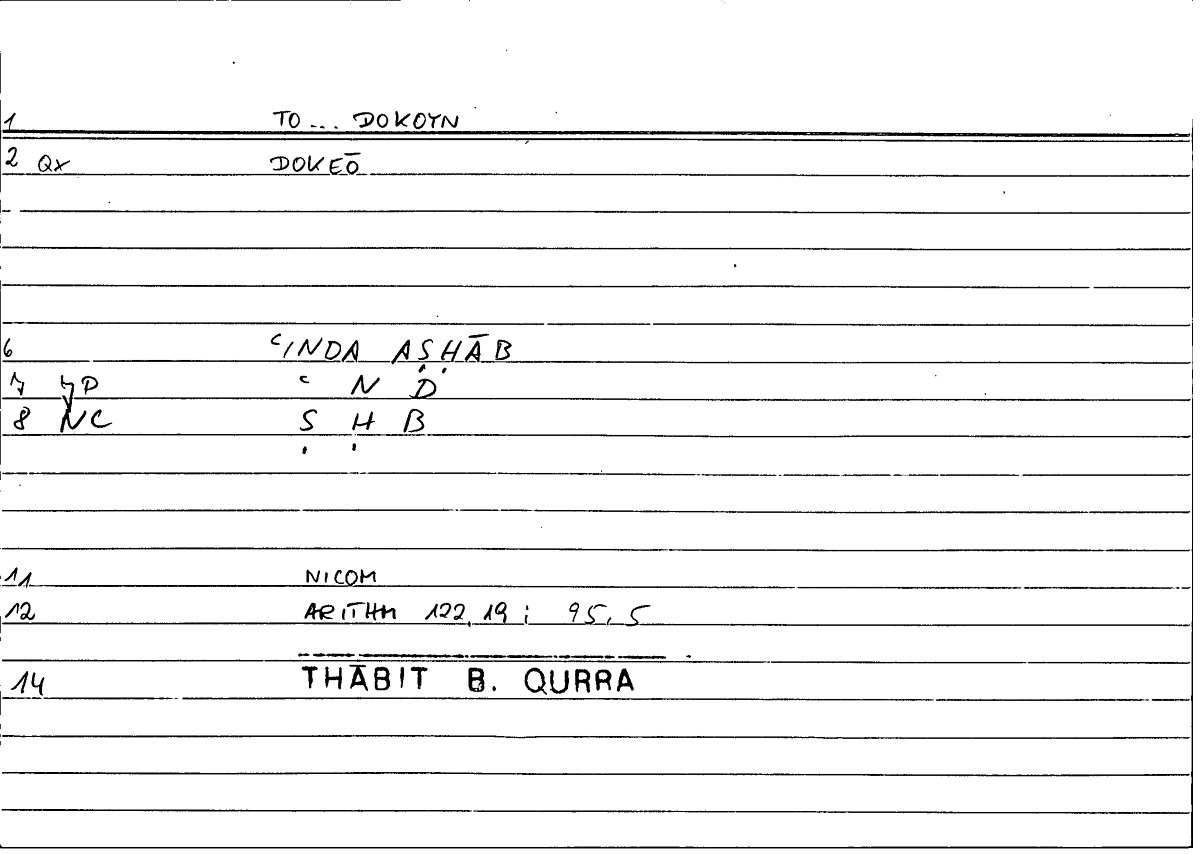 1 TO ... DOKOYN
2 Qx DOKEŌ
6 ʿINDA AṢḤĀB
7 ʿ N D
8 NC Ṣ Ḥ B
11 NICOM
12 ARITHM 122,19 ; 95,5
14 THĀBIT B. QURRA